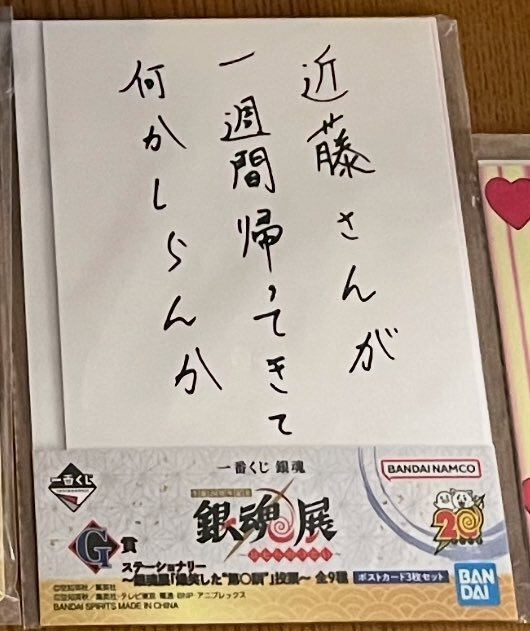 近藤さんが
一週間帰ってきて
何かしらんか
一番くじ 銀魂
BANDAI NAMCO
一番くじ
銀魂展
20
G賞
ステーショナリー
～銀魂展「爆笑した"第〇訓"」投票～ 全9種
ポストカード3枚セット
©空知英秋／集英社
©空知英秋／集英社・テレビ東京・電通・BNP・アニプレックス
BANDAI SPIRITS MADE IN CHINA
BAN
DAI